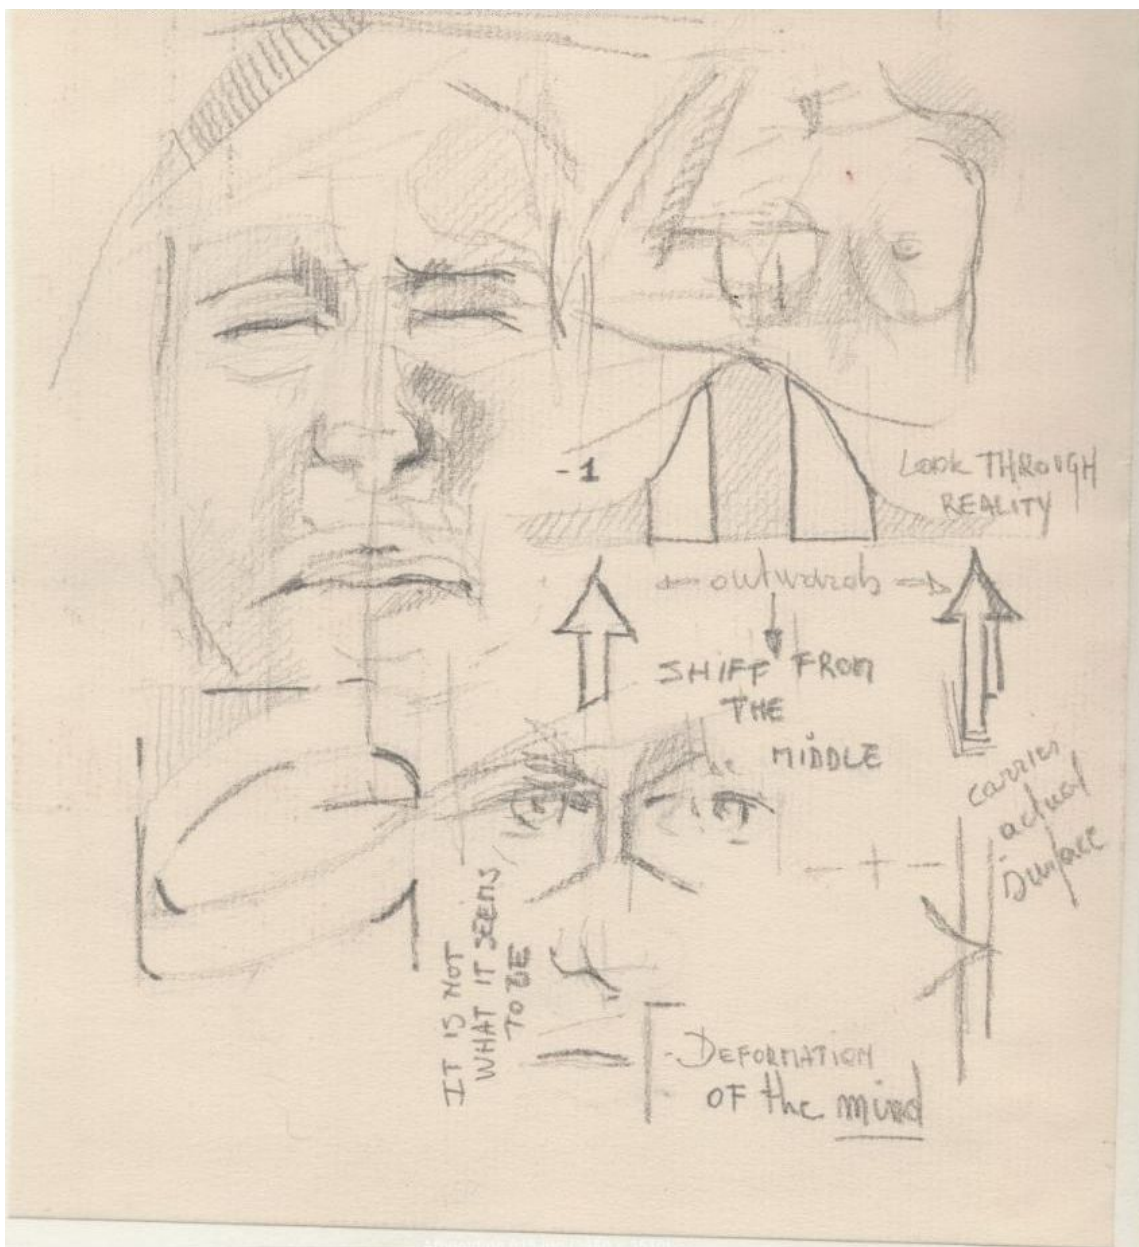 -1
LOOK THROUGH
REALITY
outwards
SHIFT FROM
THE
MIDDLE
carries
actual
surface
IT IS NOT
WHAT IT SEEMS
TO BE
-DEFORMATION
OF the mind